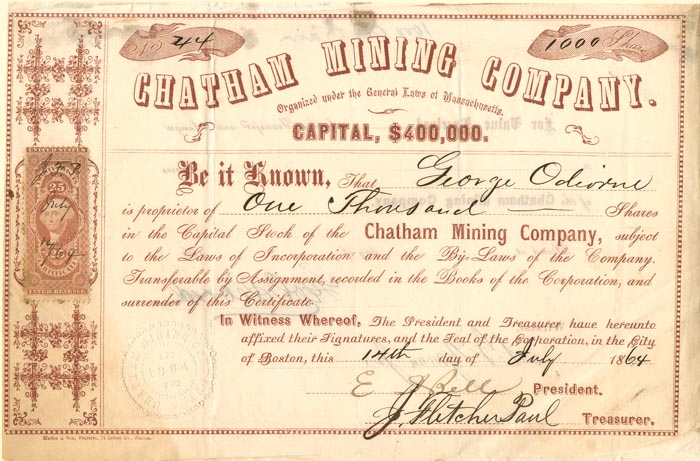 No 44
1000 Shares
CHATHAM MINING COMPANY.
Organized under the General Laws of Massachusetts.
CAPITAL, $400,000.
Be it Known, That George Osborne
is proprietor of One Thousand Shares
in the Capital Stock of the Chatham Mining Company, subject
to the Laws of Incorporation and the By-Laws of the Company.
Transferable by Assignment, recorded in the Books of the Corporation, and
surrender of this Certificate.
In Witness Whereof, The President and Treasurer have hereunto
affixed their Signatures, and the Seal of the Corporation, in the City
of Boston, this 14th day of July 1864
E Bell President.
J. Fletcher Paul Treasurer.
25
J. F. P.
July
14
1864
CERTIFICATE
INTER. REVENUE
1864